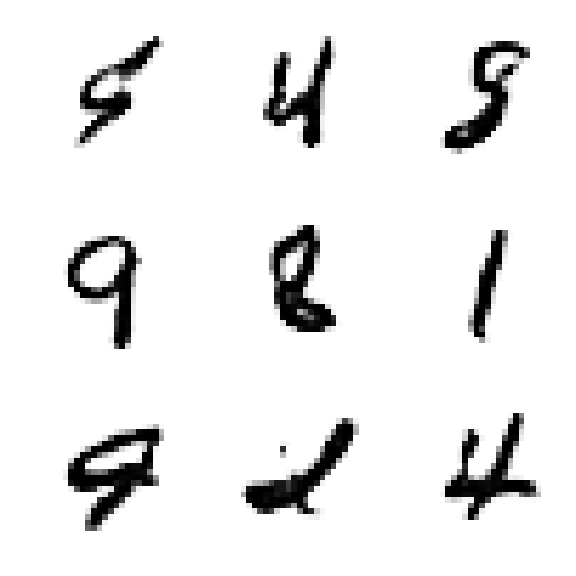 5 4 8
9 8 1
9 2 4